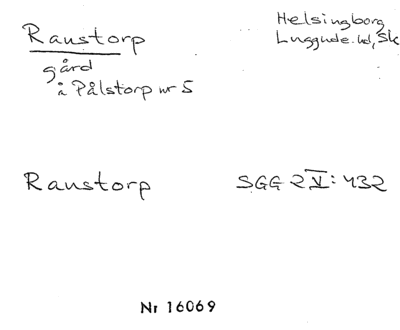 Ranstorp
Helsingborg
Luggude hd, Sk
gård
å Pålstorp nr 5
Ranstorp
SGG 2 V: 432
Nr 16069